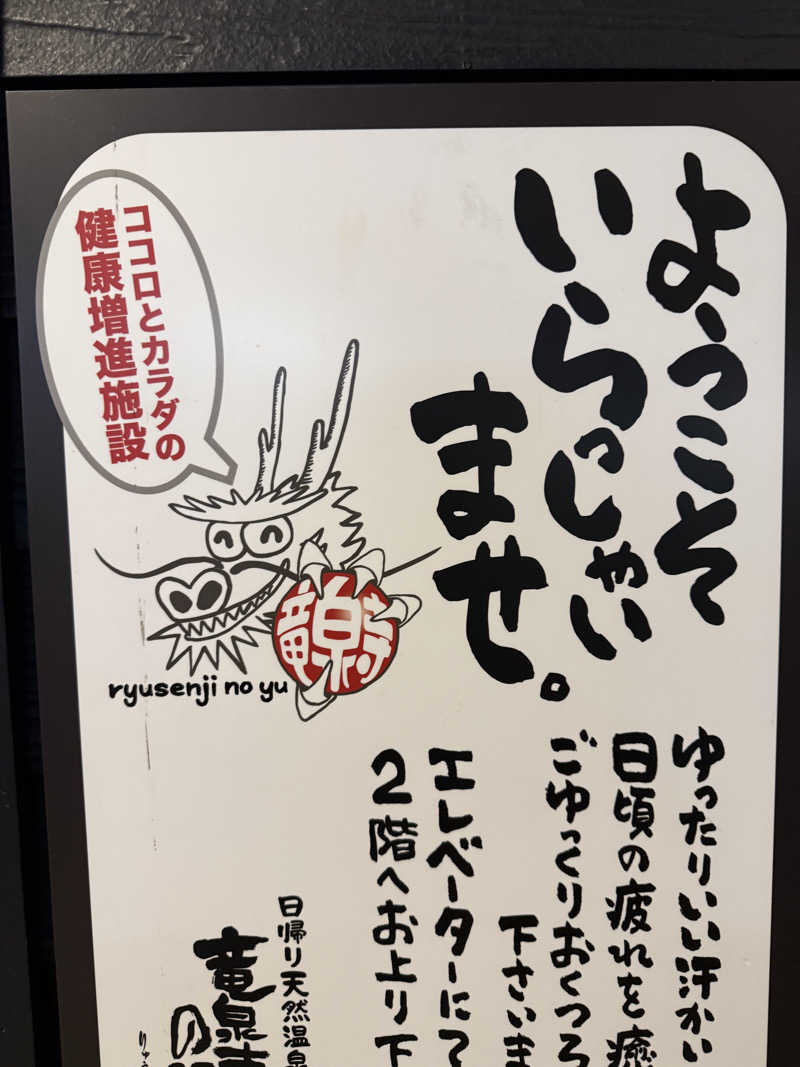 ようこそ
いらっしゃい
ませ。
ココロとカラダの
健康増進施設
竜泉寺
ryusenji no yu
ゆったりいい汗かい
日頃の疲れを癒
ごゆっくりおくつろ
下さいま
エレベーターにて
２階へお上り下
日帰り天然温泉
竜泉寺
の
りゅう